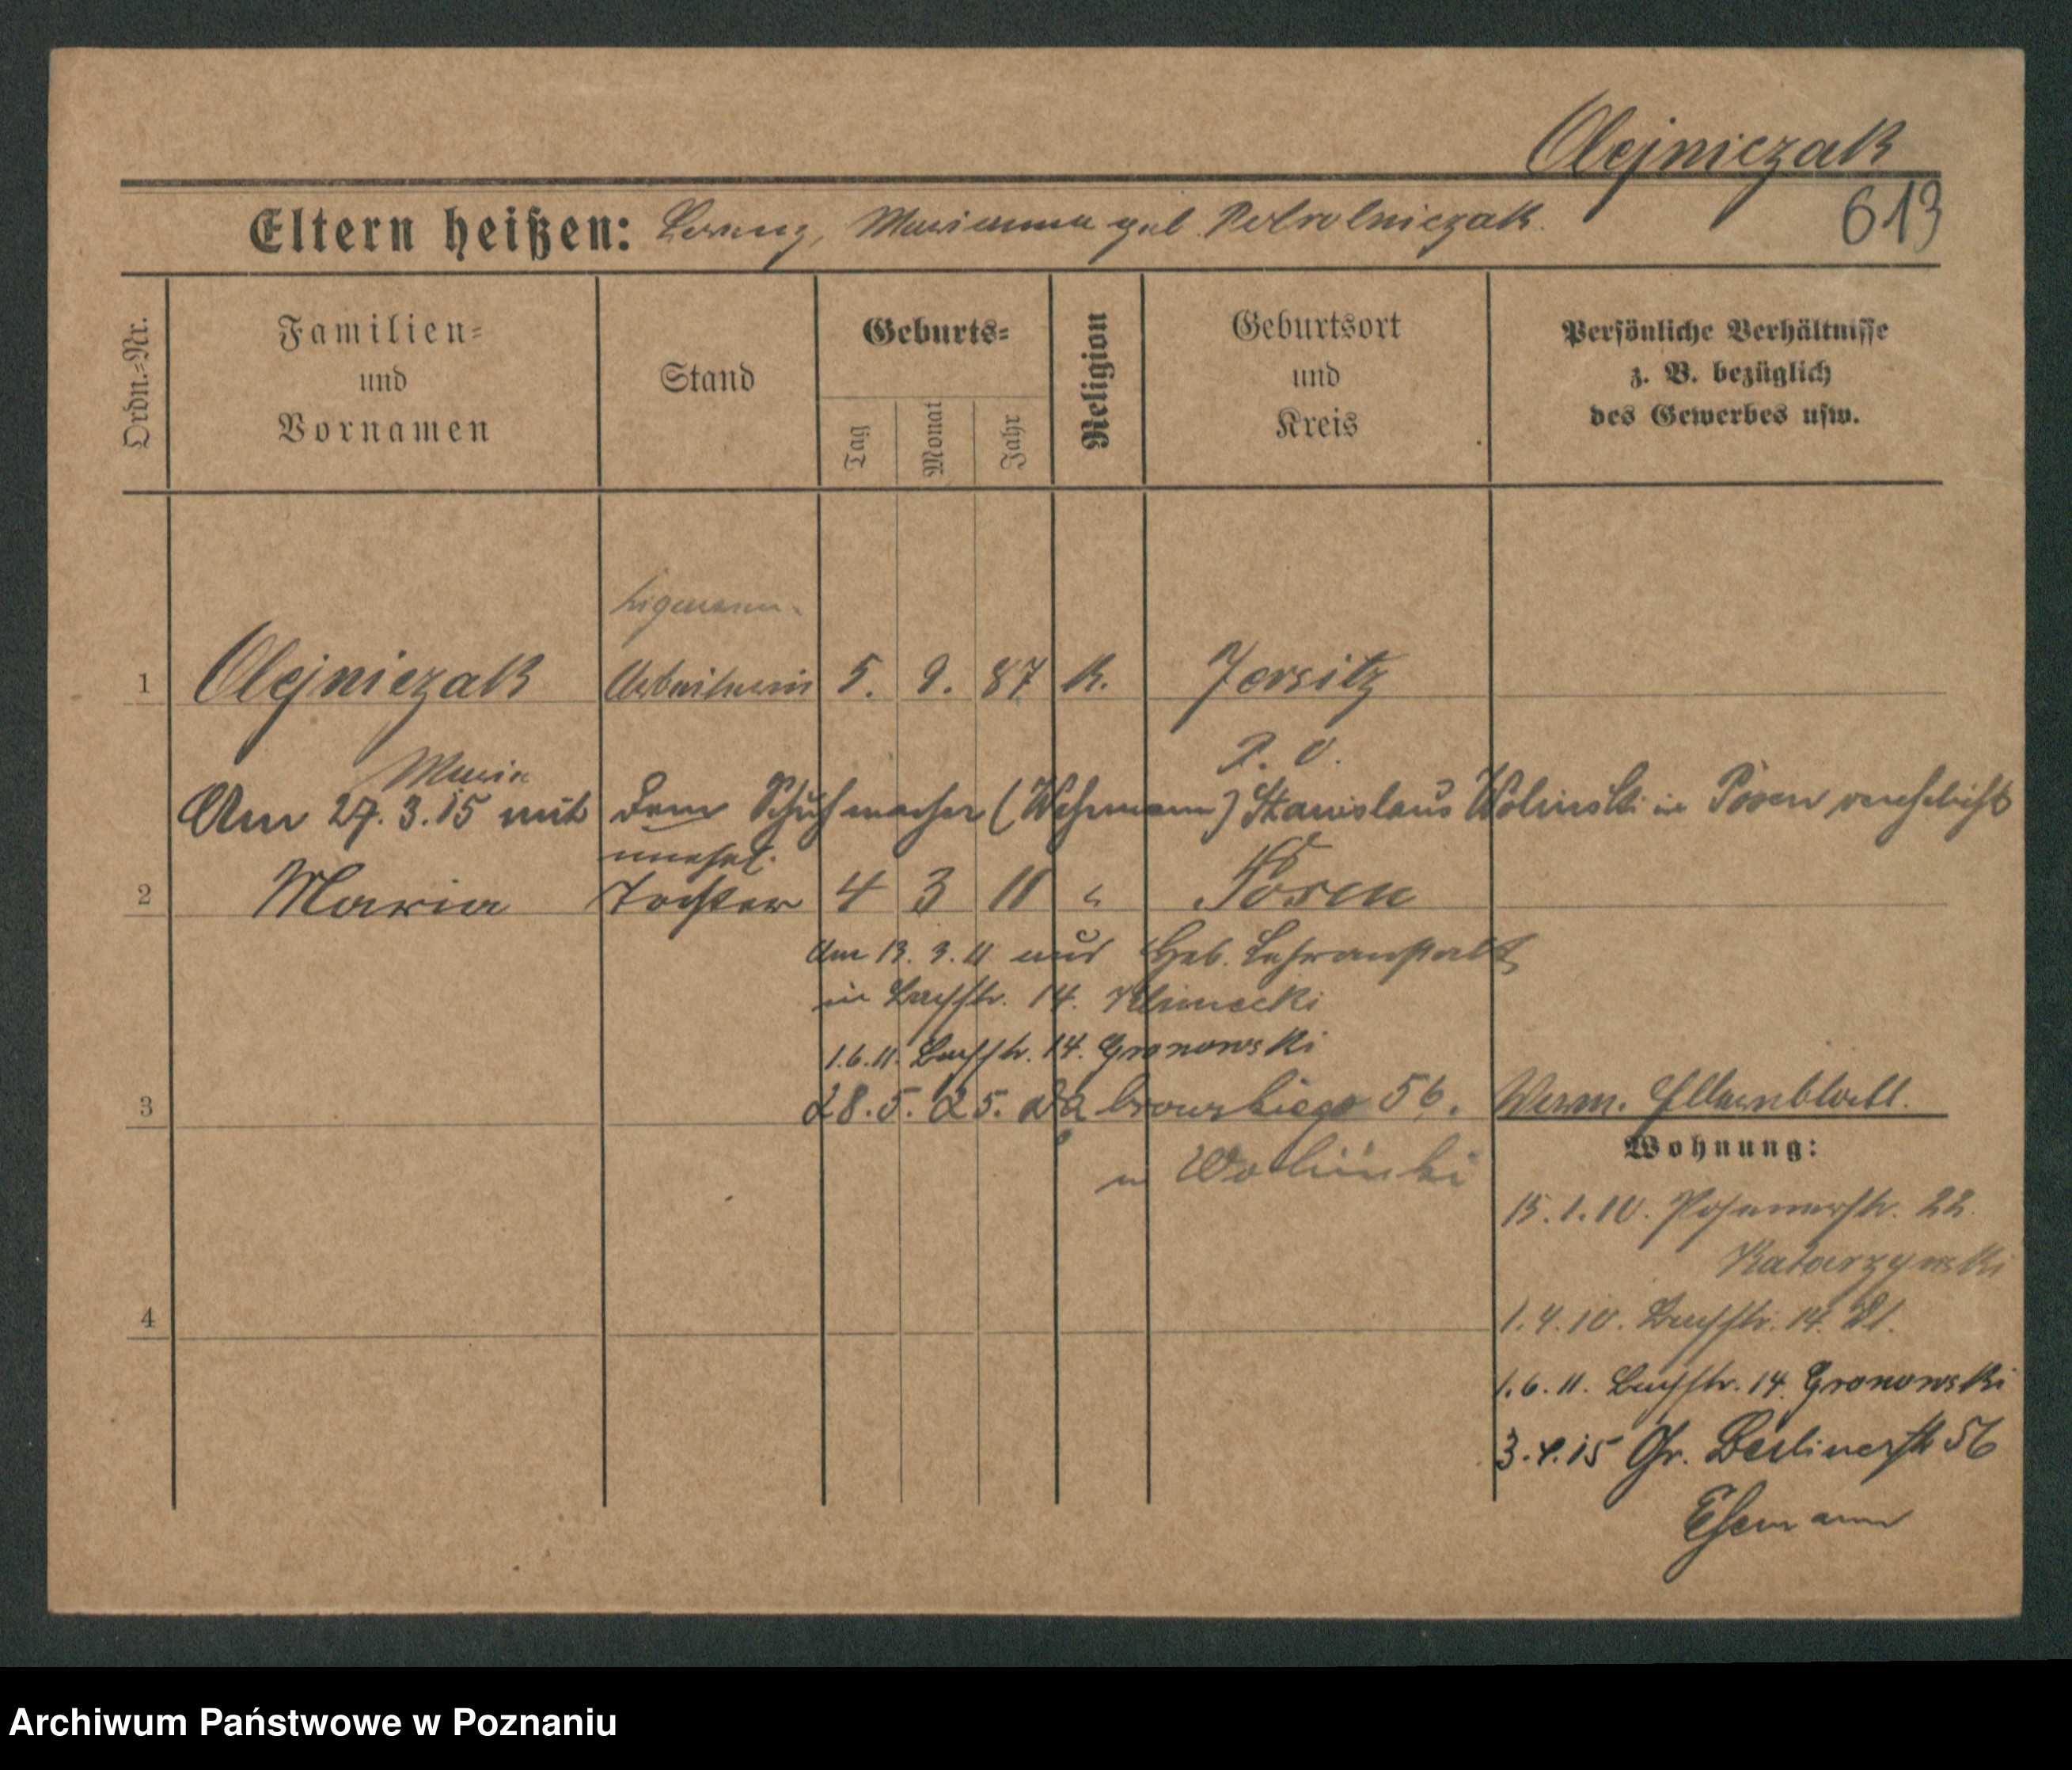 Olejniczak
613
Eltern heißen: Lorenz, Marianna geb.
Ordn.=Nr.
Familien=
und
Vornamen
Stand
Geburts=
Tag
Monat
Jahr
Religion
Geburtsort
und
Kreis
Persönliche Verhältnisse
z. B. bezüglich
des Gewerbes usw.
1 Olejniczak Arbeiterin 5. 9. 87 K. Jersitz
Maria P. O.
Am 27. 3. 15 mit dem Schuhmacher (Wehrmann) Stanislaus Wolinski in Posen verehelicht
unehel.
2 Maria Tochter 4 3 11 " Posen
Am 13. 3. 11 aus Heb. Lehranstalt
in Bachstr. 14. Klimecki
1.6.11. Bachstr. 14. Gronowski
3 28. 5. 25. Dąbrowskiego 56.
u Woliński
Wohnung:
15. 1. 10. Posenerstr. 22.
Katarzynski
4
1. 4. 10. Bachstr. 14.
1. 6. 11. Bachstr. 14 Gronowski
3. 4. 15 Gr. Berlinerstr 56
Ehemann
Archiwum Państwowe w Poznaniu